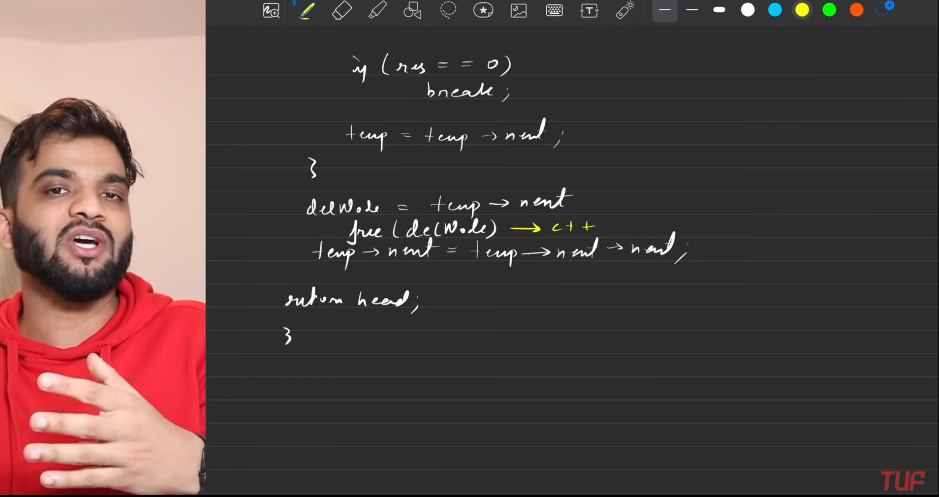 if (res == 0)
break;
temp = temp → next;
}
delNode = temp → next
free (delNode) → c++
temp → next = temp → next → next;
return head;
}
TUF